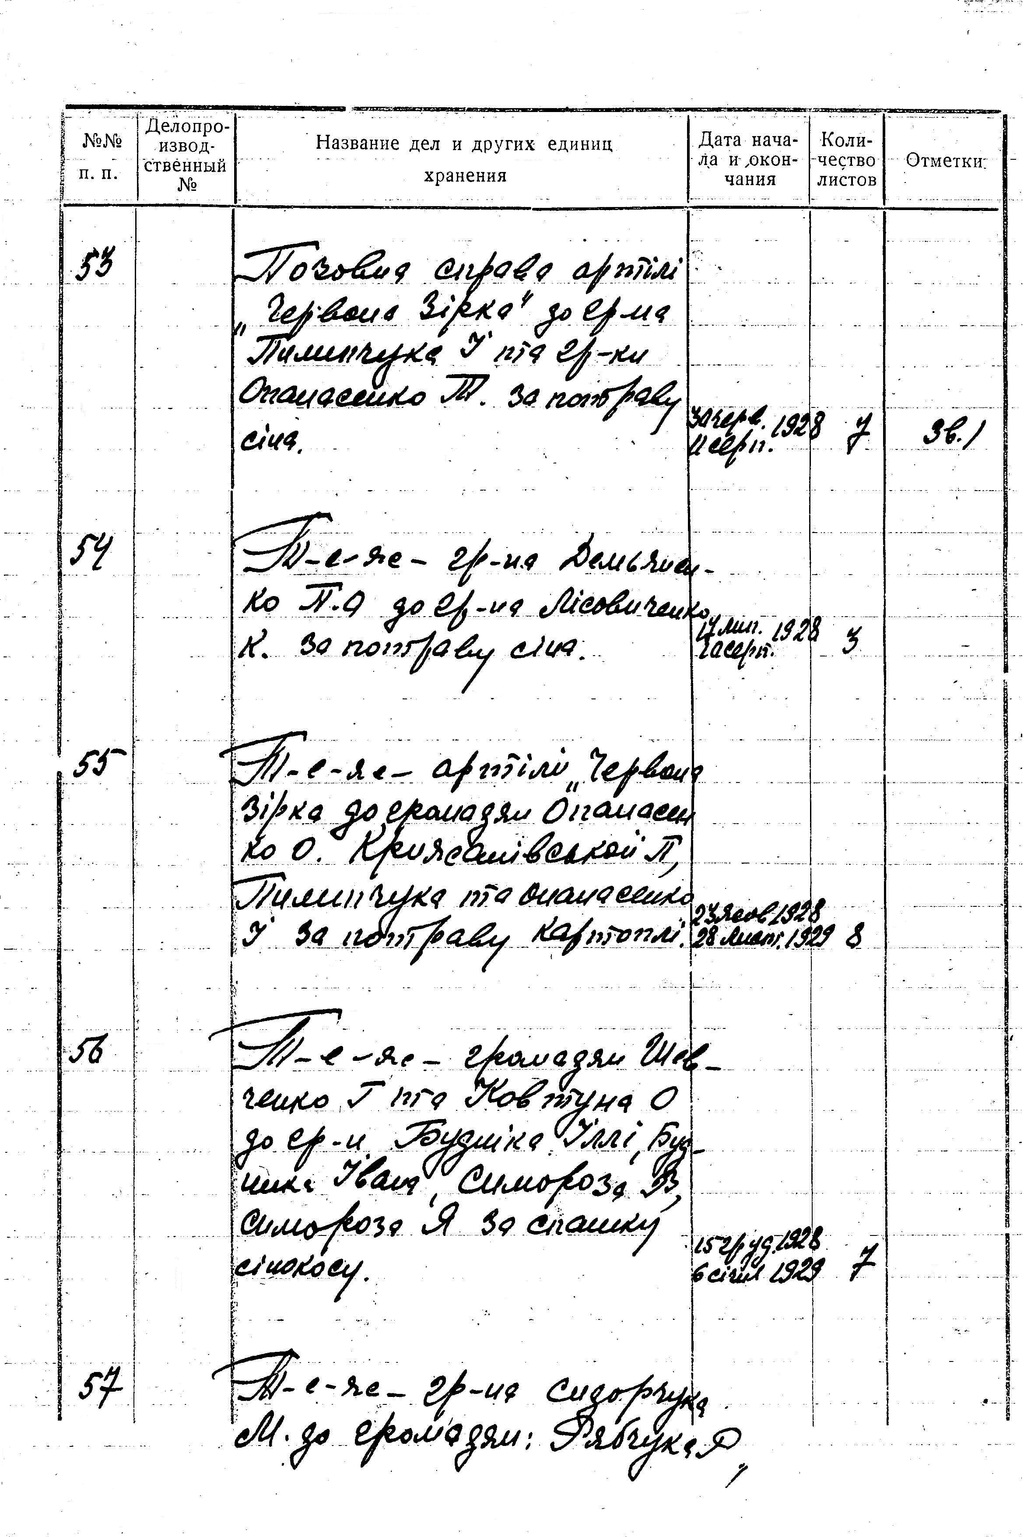 №№ п. п.
Делопроизводственный №
Название дел и других единиц хранения
Дата начала и окончания
Количество листов
Отметки
53
Позовна справа артілі
„Червона Зірка" до гр-на
Пилипчука І та гр-ки
Опанасенко Т. за потраву
сіна.
30 черв. 1928
11 серп.
7
Зв. 1
54
Т-е-яс- гр-на Демьянен-
ко П.О до гр-на Лісовиченко
К. за потраву сіна.
17 лип. 1928
серп.
3
55
Т-е-яс- артілі „Червона
Зірка до громадян Опанасен
ко О. Крижанівської П,
Пилипчука та Опанасенко
І за потраву картоплі.
23 жов 1928
28 лист. 1929
8
56
Т-е-яс- громадян Шев-
ченко Г та Ковтуна О
до гр-н Будніка Іллі, Буд-
ника Івана, Симороза В,
Симороза Я за спашку
сінокосу.
15 груд. 1928
6 січн 1929
7
57
Т-е-яс- гр-на Сидорчука
М. до громадян: Рябчука Р,